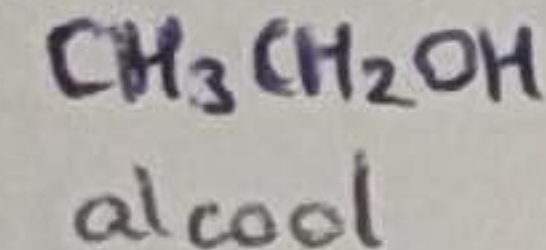 CH₃CH₂OH
alcool